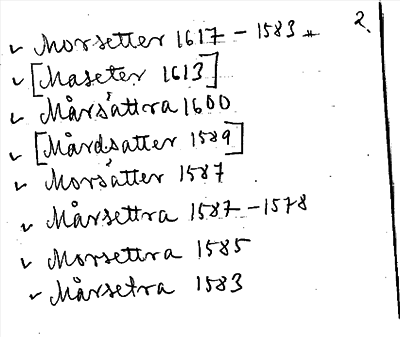 2.
✓ Morsetter 1617 - 1583 "
✓ [Maseter 1613]
✓ Mårsättra 1600
✓ [Mårdsatter 1589]
✓ Morsätter 1587
✓ Mårsettra 1587-1578
✓ Morsettra 1585
✓ Mårsetra 1583